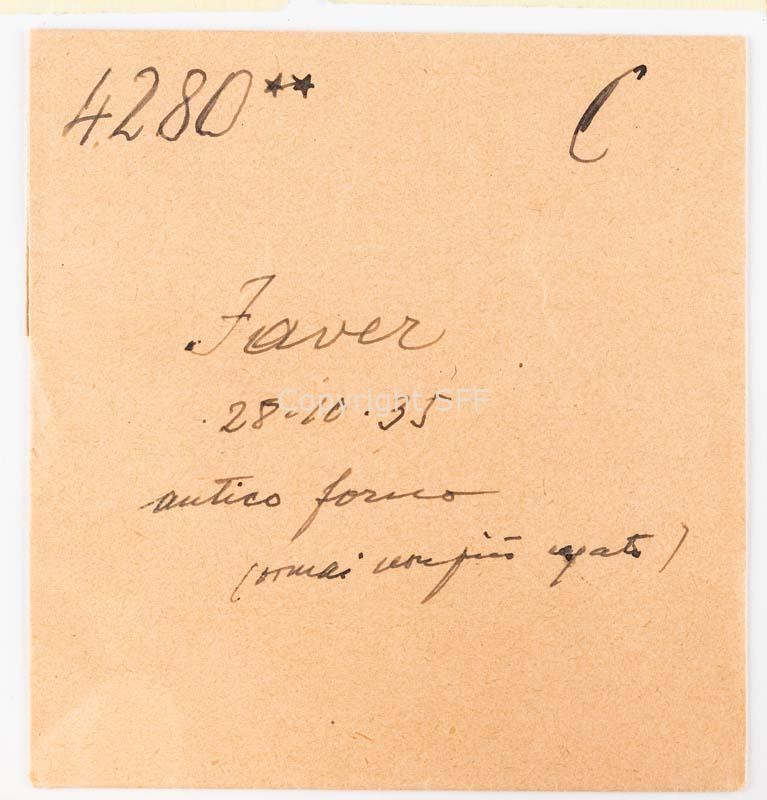 4280** C
Faver
Copyright SFF
28.10.35
antico forno
(ormai non più usato)